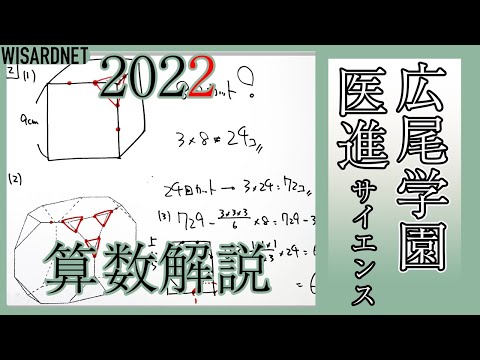 WISARDNET
2022
2 (1)
9cm
カット
3×8=24コ〃
(2)
24回カット→3×24=72コ〃
(3) 729-3×3×3/6×8=729-3
×24=
算数解説
広尾学園
医進サイエンス